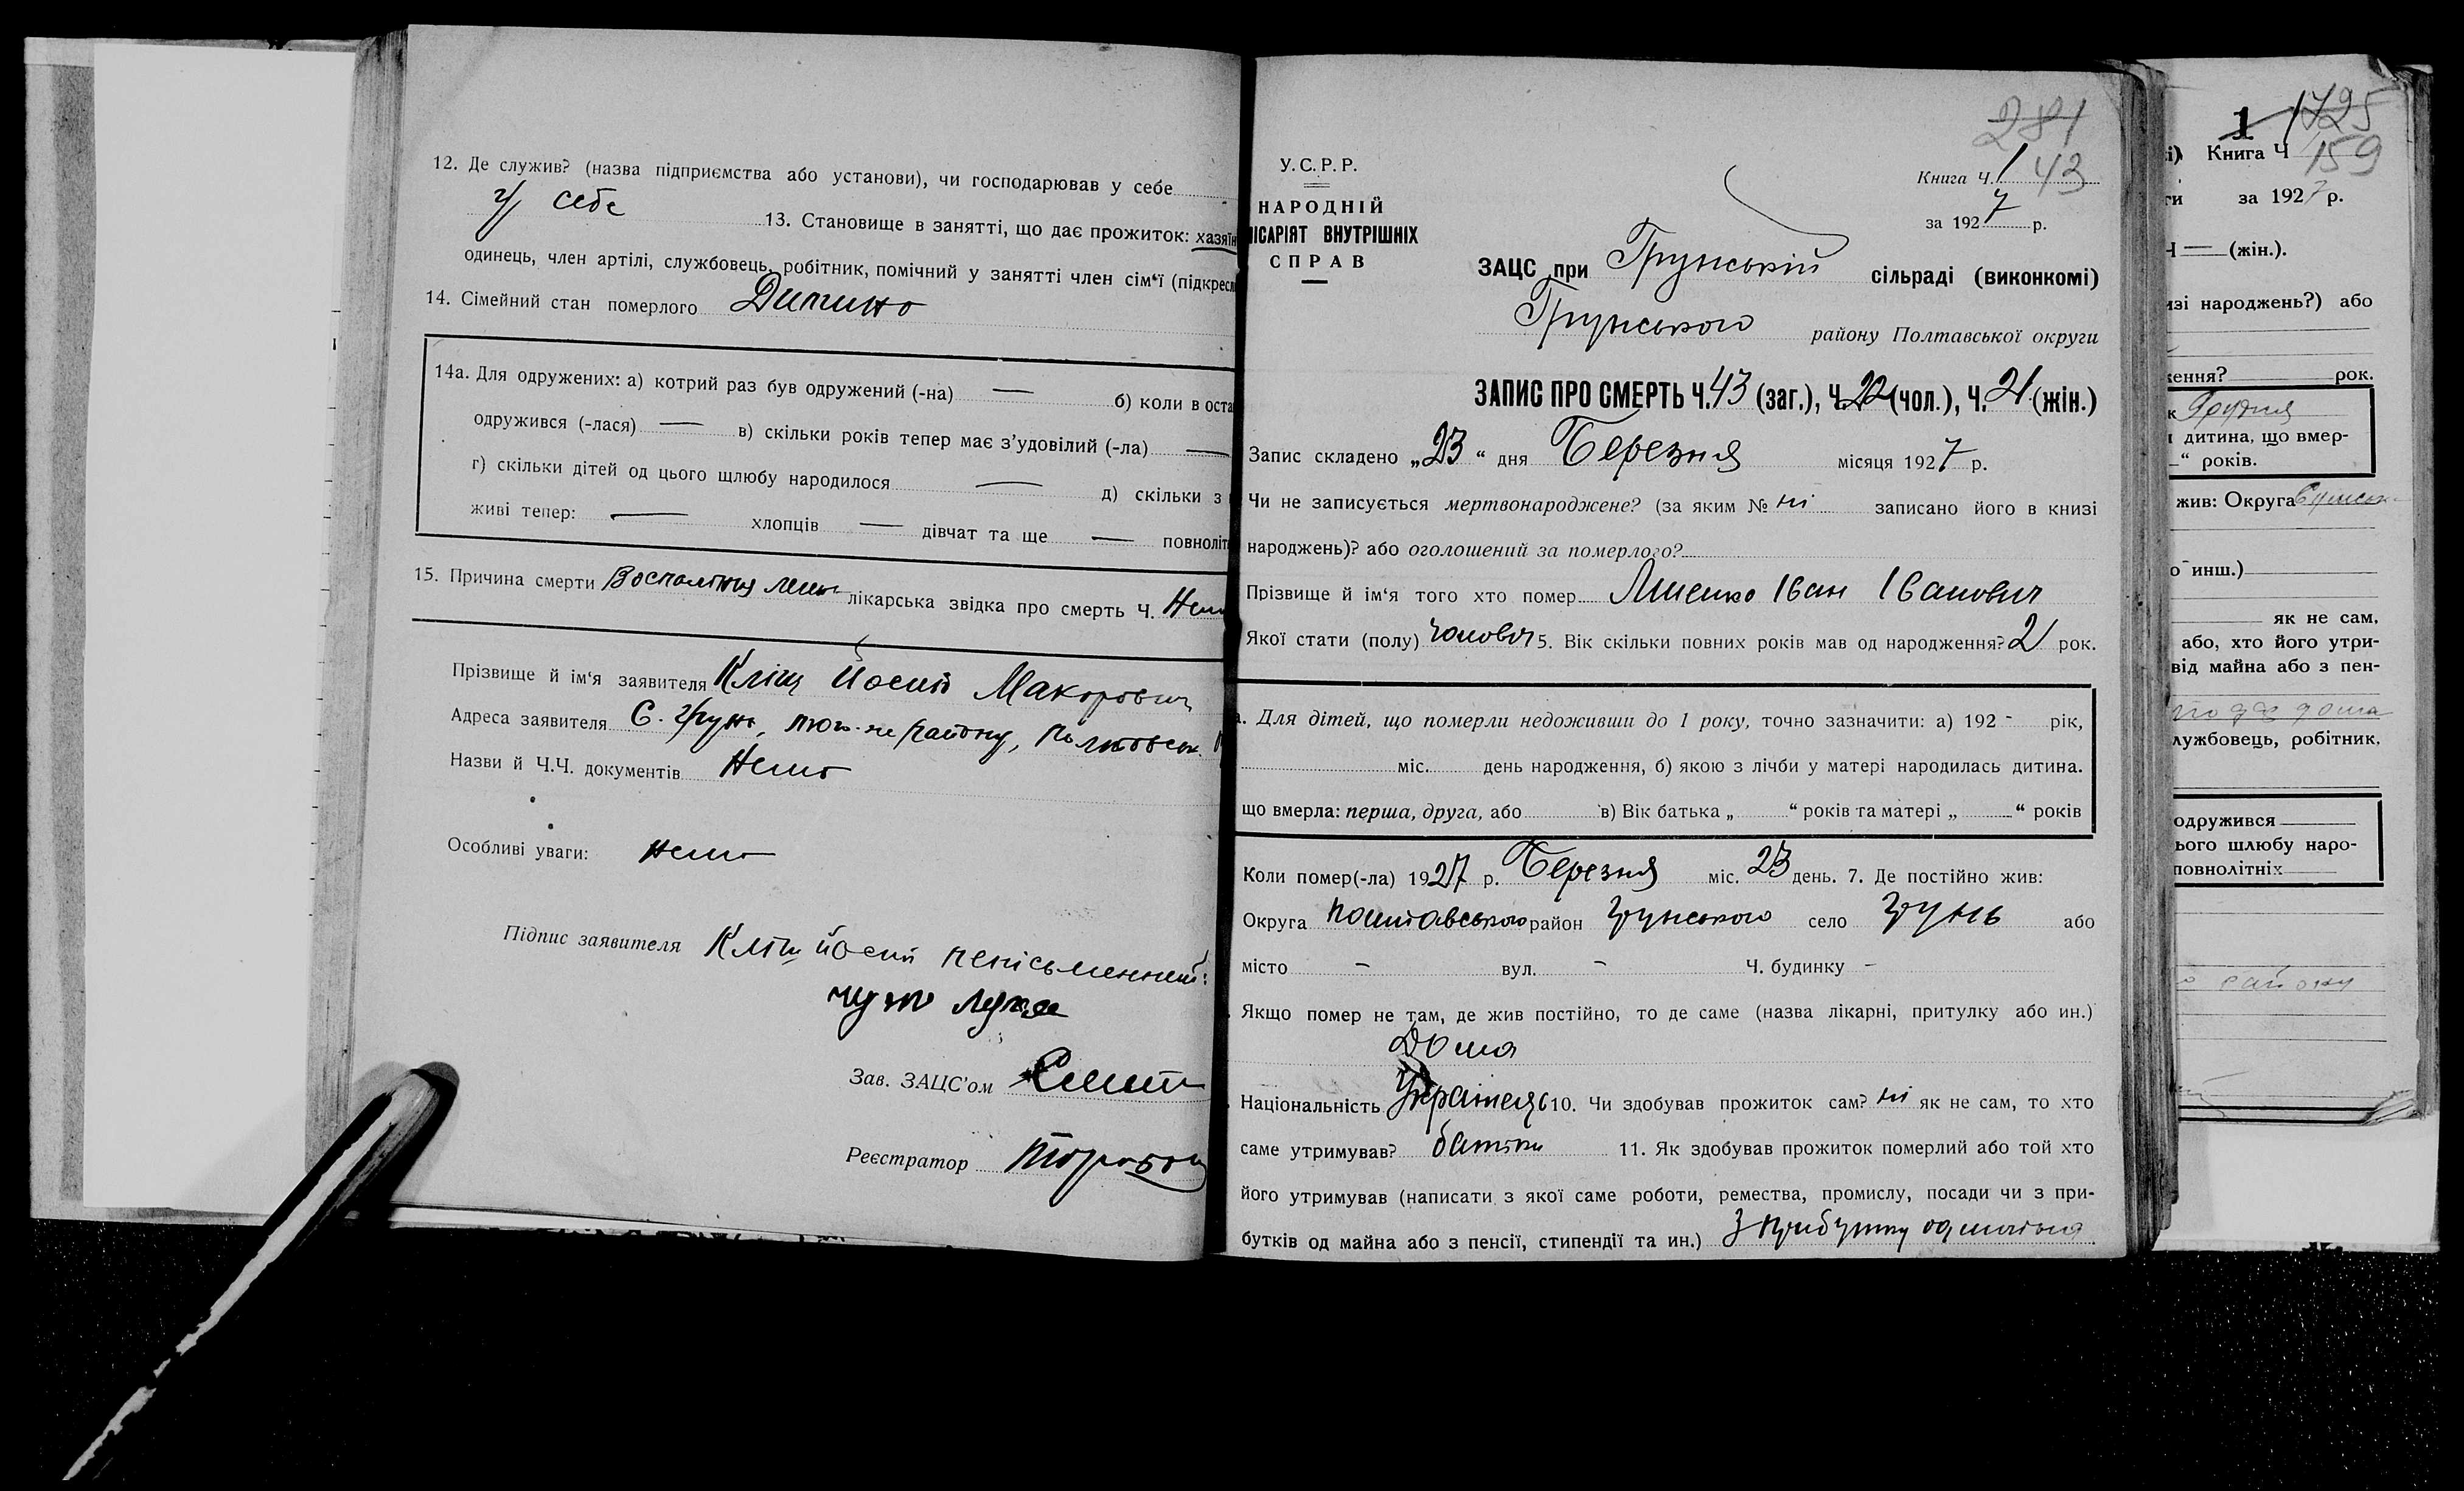 12. Де служив? (назва підприємства або установи), чи господарював у себе
у себе 13. Становище в занятті, що дає прожиток: хазяїн
одинець, член артілі, службовець, робітник, помічний у занятті член сім'ї (підкресл
14. Сімейний стан померлого Дитина
14а. Для одружених: а) котрий раз був одружений (-на) — б) коли в оста
одружився (-лася) — в) скільки років тепер має з'удовілий (-ла) —
г) скільки дітей од цього шлюбу народилося — д) скільки з
живі тепер: — хлопців — дівчат та ще — повноліт
15. Причина смерти лікарська звідка про смерть Ч. Нема
Прізвище й ім'я заявителя Кліщ Йосип Макарович
Адреса заявителя С. Грунь, району, Полтавськ.
Назви й Ч.Ч. документів Нема
Особливі уваги: нема
Підпис заявителя Кліщ Йосип неписьменний:
Зав. ЗАЦС'ом
Реєстратор
281
У.С.Р.Р.
Книга Ч. 1 43
НАРОДНІЙ
за 1927 р.
ІСАРІЯТ ВНУТРІШНІХ
СПРАВ
ЗАЦС при Грунській сільраді (виконкомі)
Грунського району Полтавської округи
ЗАПИС ПРО СМЕРТЬ Ч. 43 (заг.), Ч. 22 (чол.), Ч. 21 (жін.)
Запис складено „23“ дня Березня місяця 1927 р.
Чи не записується мертвонароджене? (за яким № ні записано його в книзі
народжень)? або оголошений за померлого?
Прізвище й ім'я того хто помер Іван Іванович
Якої стати (полу) чолович 5. Вік скільки повних років мав од народження? 2 рок.
а. Для дітей, що померли недоживши до 1 року, точно зазначити: а) 192 - рік,
міс. день народження, б) якою з лічби у матері народилась дитина.
що вмерла: перша, друга, або в) Вік батька „ “ років та матері „ “ років
Коли помер(-ла) 1927 р. Березня міс. 23 день. 7. Де постійно жив:
Округа Полтавського район Грунського село Грунь або
місто - вул. - Ч. будинку -
Якщо помер не там, де жив постійно, то де саме (назва лікарні, притулку або ин.)
Дома
Національність Українець 10. Чи здобував прожиток сам? ні як не сам, то хто
саме утримував? батьки 11. Як здобував прожиток померлий або той хто
його утримував (написати з якої саме роботи, ремества, промислу, посади чи з при-
бутків од майна або з пенсії, стипендії та ин.) З прибутку од
1 1725
і) Книга Ч 159
ти за 1927 р.
Ч — (жін.).
изі народжень?) або
ження? рок.
к Грудня
дитина, що вмер-
—“ років.
жив: Округа Сумськ
о инш.)
як не сам,
або, хто його утри-
від майна або з пен-
лужбовець, робітник,
одружився
ього шлюбу наро-
повнолітніх
району